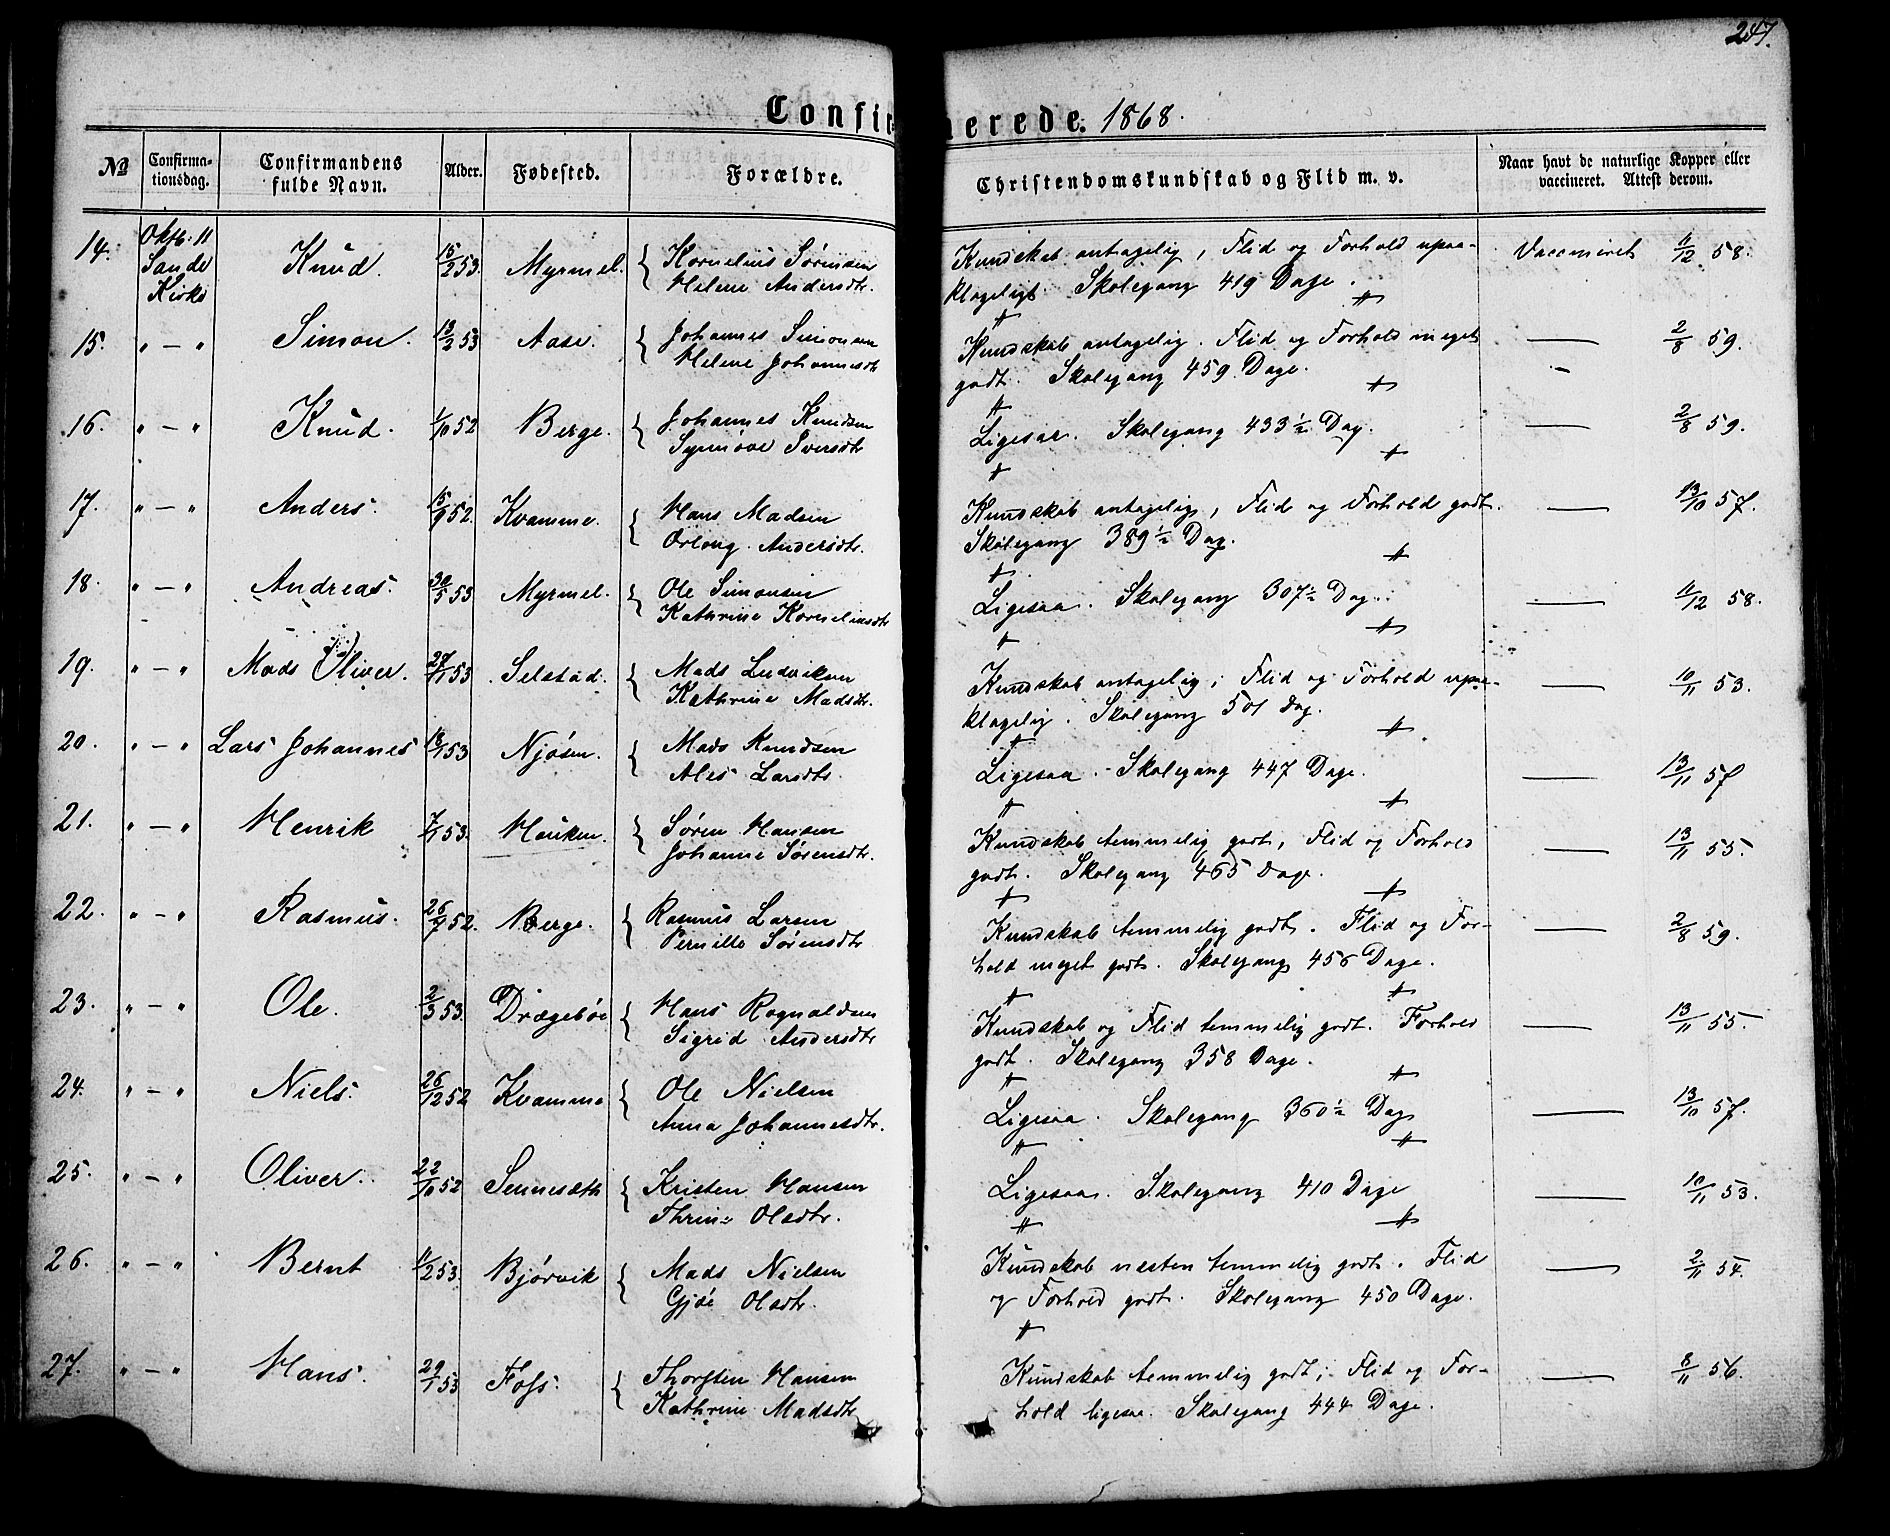 247.
Confirmerede. 1868.
No Confirmationsdag. Confirmandens fulde Navn. Alder. Fødested. Forældre. Christendomskundskab og Flid m. v. Naar havt de naturlige Kopper eller vaccineret. Attest derom.
14. Oktb. 11 Sande Kirke Knud. 15/2 53. Myrmel. { Kornelius Sørensen Kundskab antagelig, Flid og Forhold upaa- Vaccineret 11/12 58.
Helene Andersdtr. klageligt. Skolegang 419 Dage.
15. " — " Simon. 13/2 53 Aase. { Johannes Simonsen Kundskab antagelig. Flid og Forhold meget — 2/8 59.
Helene Johannesdtr godt. Skolegang 459 Dage.
16. " — " Knud. 1/10 52 Berge. { Johannes Knudsen Ligesaa. Skolegang 433 1/2 Dag. — 2/8 59.
Synnøve Iversdtr
17. " — " Anders. 15/9 52. Kvamme. { Hans Madsen Kundskab antagelig, Flid og Forhold godt. — 13/10 57.
Orloug Andersdtr. Skolegang 389 1/2 Dag.
18. " — " Andreas. 30/5 53 Myrmel. { Ole Simonsen Ligesaa. Skolegang 307 1/2 Dag. — 11/12 58.
Kathrine Korneliusdtr
19. " — " Mads Oliver. 27/1 53 Selstad. { Mads Ludviksen Kundskab antagelig; Flid og Forhold upaa- — 10/11 53.
Kathrine Madsdtr. klagelig. Skolegang 501 Dag.
20. " — " Lars Johannes 18/1 53 Njøsen. { Mads Knudsen Ligesaa. Skolegang 447 Dage. — 13/11 57
Ales Larsdtr.
21. " — " Henrik 7/1 53. Hauken. { Søren Hansen Kundskab temmelig godt, Flid og Forhold — 13/11 55.
Johanne Sørensdtr. godt. Skolegang 465 Dage.
22. " — " Rasmus. 26/7 52. Berge. { Rasmus Larsen Kundskab temmelig godt. Flid og For- — 2/8 59.
Pernille Sørensdtr hold meget godt. Skolegang 456 Dage.
23. " — " Ole. 2/3 53. Drægebøe { Hans Rognaldsen Kundskab og Flid temmelig godt. Forhold — 13/11 55.
Sigrid Andersdtr godt. Skolegang 358 Dage.
24. " — " Niels. 26/12 52 Kvamme { Ole Nielsen Ligesaa. Skolegang 360 1/2 Dag — 13/10 57.
Anna Johannesdtr.
25. " — " Oliver. 22/10 52 Sennesæth { Kristen Hansen Ligesaa. Skolegang 410 Dage — 10/11 53.
Thrine Olsdtr.
26. " — " Bernt 11/2 53. Bjørvik { Mads Nielsen Kundskab næsten temmelig godt. Flid — 2/11 54.
Gjøe Olsdtr. og Forhold godt. Skolegang 450 Dage.
27. " — " Hans. 29/1 53 Foss. { Thorsten Hansen Kundskab temmelig godt; Flid og For- — 8/11 56.
Kathrine Madsdtr hold ligesaa. Skolegang 444 Dage.